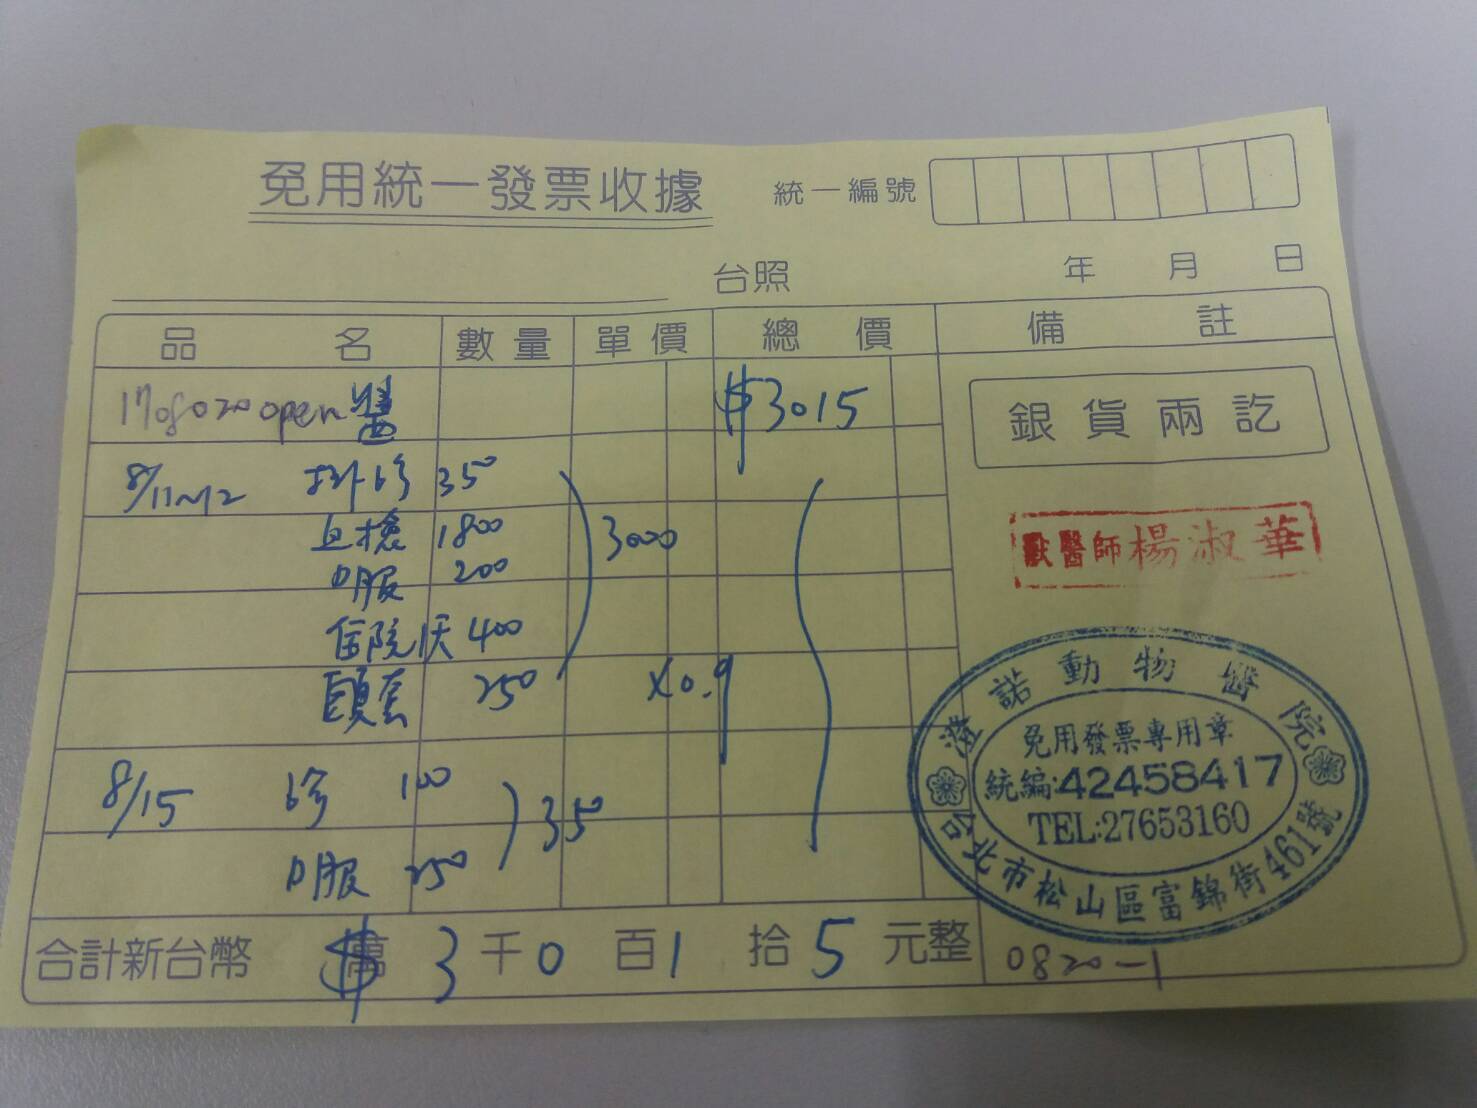 免用統一發票收據
統一編號
台照
年 月 日
品名 數量 單價 總價 備註
170802 open $3015
銀貨兩訖
8/11~12 掛診 350
血檢 1800
口服 200
3000
住院1天 400
頭套 250
×0.9
獸醫師楊淑華
8/15 診 100
口服 250
350
澄諾動物醫院
免用發票專用章
統編:42458417
TEL:27653160
台北市松山區富錦街461號
合計新台幣 $ 萬 3 千 0 百 1 拾 5 元整
0820-1